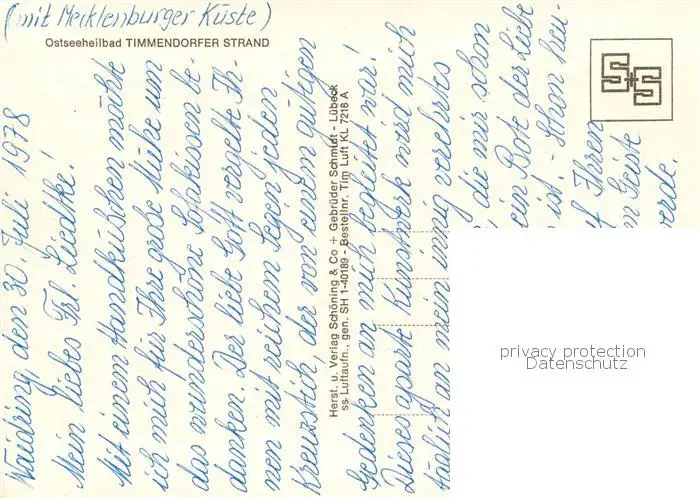 (mit Mecklenburger Küste)
Ostseeheilbad TIMMENDORFER STRAND
Waidring, den 30. Juli 1978
Mein liebes Frl. Liedtke!
Mit einem Handküßchen möchte
ich mich für Ihre große Mühe um
das wunderschöne Sofakissen be-
danken. Der liebe Gott vergelte Ih-
nen mit reichem Segen jeden
Kreuzstich, der von einem gütigen
Gedenken an mich begleitet war!
Dieses aparte Kunstwerk wird mich
täglich an mein innig verehrtes
die mir schon
ein Bote der Liebe
ist. - Schon heu-
f Ihren
m Geiste
werde.
Herst. u. Verlag Schöning & Co + Gebrüder Schmidt - Lübeck
ss Luftaufn., gen. SH 1-40189 - Bestellnr. Tim Luft KL 7218 A
S+S
privacy protection
Datenschutz